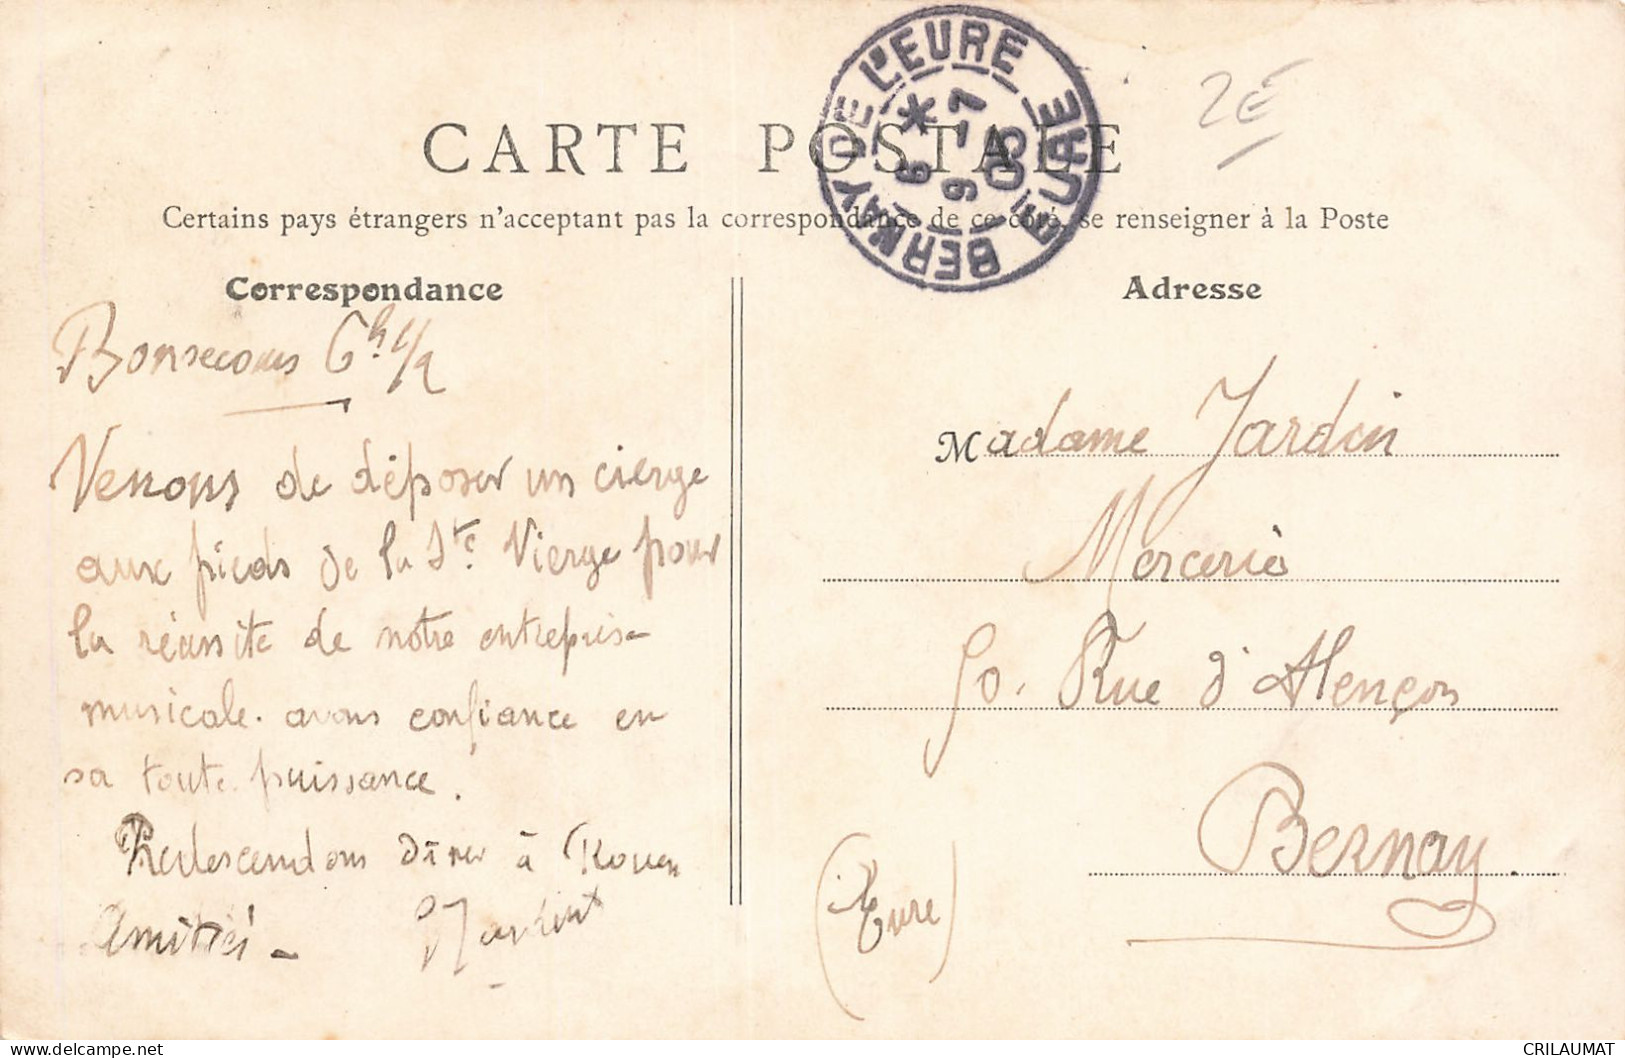 CARTE POSTALE
Certains pays étrangers n'acceptant pas la correspondance de ce côté, se renseigner à la Poste
BERNAY DE L'EURE
EURE
6 * 
9 - 7
05
2€
Correspondance
Bonsecours 6h 1/2
Venons de déposer un cierge
aux pieds de la Ste Vierge pour
la réussite de notre entreprise
musicale. avons confiance en
sa toute puissance.
Redescendons dîner à Rouen
Amitiés -
Adresse
Madame Jardin
Mercerie
50. Rue d'Alençon
Bernay.
(Eure)
delcampe.net
CRILAUMAT